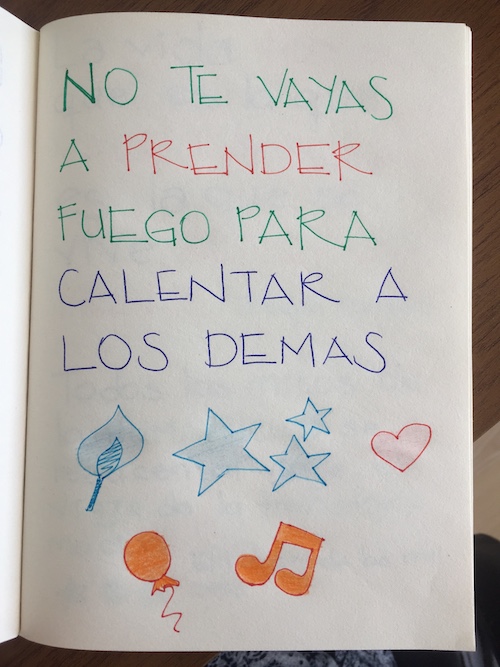 NO TE VAYAS
A PRENDER
FUEGO PARA
CALENTAR A
LOS DEMAS